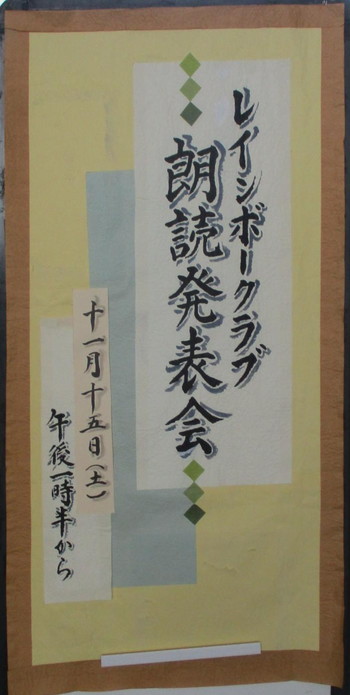 レインボークラブ
朗読発表会
十一月十五日(土)
午後一時半から